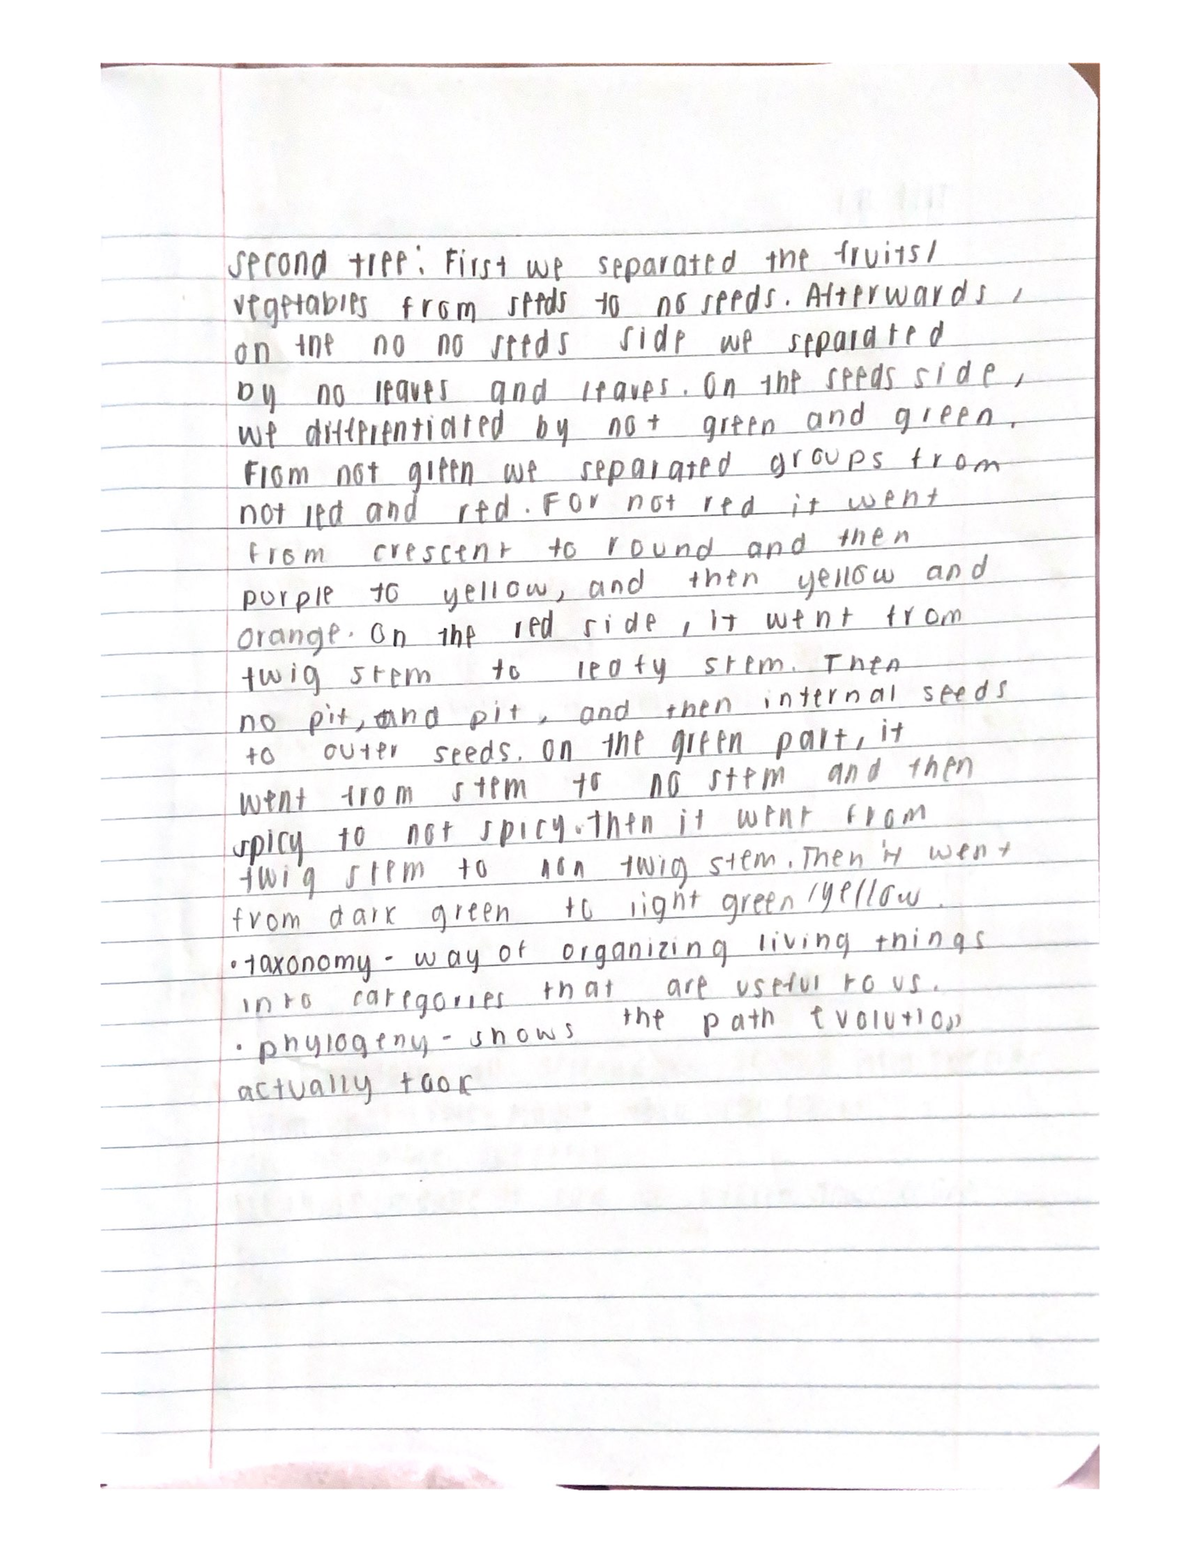 second tree: First we separated the fruits/
vegetables from seeds to no seeds. Afterwards,
on the no no seeds side we separated
by no leaves and leaves. On the seeds side,
we differentiated by not green and green.
From not green we separated groups from
not red and red. For not red it went
from crescent to round and then
purple to yellow, and then yellow and
orange. On the red side, it went from
twig stem to leafy stem. Then
no pit, and pit, and then internal seeds
to outer seeds. On the green part, it
went from stem to no stem and then
spicy to not spicy. then it went from
twig stem to non twig stem. Then it went
from dark green to light green/yellow.
• taxonomy - way of organizing living things
into categories that are useful to us.
• phylogeny - shows the path evolution
actually took